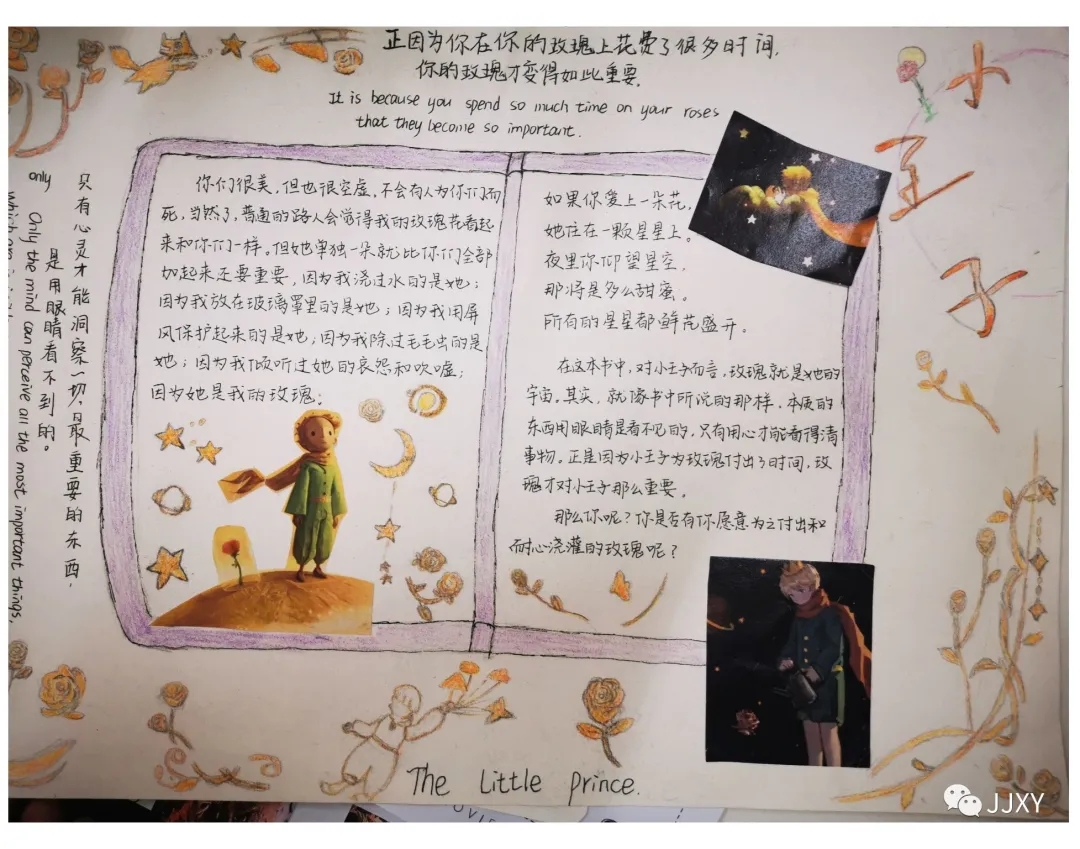 正因为你在你的玫瑰上花费了很多时间,
你的玫瑰才变得如此重要.
It is because you spend so much time on your roses
that they become so important.
小王子
只有心灵才能洞察一切,最重要的东西,
是用眼睛看不到的。
only
Only the mind can perceive all the most important things,
你们很美,但也很空虚.不会有人为你们而
死,当然了,普通的路人会觉得我的玫瑰花看起
来和你们一样。但她单独一朵就比你们全部
加起来还要重要,因为我浇过水的是她;
因为我放在玻璃罩里的是她;因为我用屏
风保护起来的是她;因为我除过毛毛虫的是
她;因为我倾听过她的哀怨和吹嘘;
因为她是我的玫瑰;
如果你爱上一朵花,
她住在一颗星星上。
夜里你仰望星空,
那将是多么甜蜜。
所有的星星都鲜花盛开。
在这本书中,对小王子而言,玫瑰就是他的
宇宙。其实,就像书中所说的那样,本质的
东西用眼睛是看不见的,只有用心才能看得清
事物。正是因为小王子为玫瑰付出了时间,玫
瑰才对小王子那么重要。
那么你呢?你是否有你愿意为之付出和
耐心浇灌的玫瑰呢?
The Little prince.
JJXY